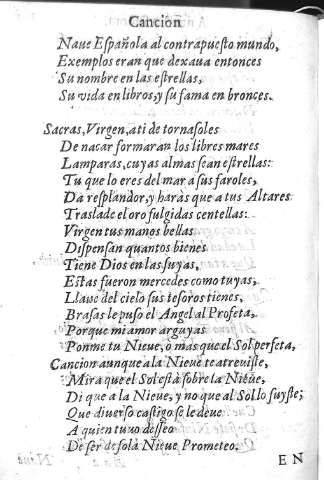 Cancion
Naue Española al contrapuesto mundo,
Exemplos eran que dexaua entonces
Su nombre en las estrellas,
Su vida en libros, y su fama en bronces.
Sacras, Virgen, ati de tornasoles
De nacar formaran los libres mares
Lamparas, cuyas almas sean estrellas:
Tu que lo eres del mar a sus faroles,
Da resplandor, y haràs que a tus Altares
Traslade el oro fulgidas centellas:
Virgen tus manos bellas
Dispensan quantos bienes
Tiene Dios en las suyas,
Estas fueron mercedes como tuyas,
Llaue del cielo sus tesoros tienes,
Brasas le puso el Angel al Profeta,
Porque mi amor arguyas
Ponme tu Nieue, ò mas que el Sol perfeta,
Cancion aunque a la Nieue te atreuiste,
Mira que el Sol està sobre la Nieue,
Di que a la Nieue, y no que al Sol lo fuyste;
Que diuerso castigo se le deue
A quien tuuo desseo
De ser de sola Nieue Prometeo.
EN